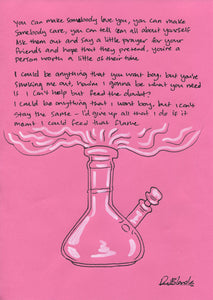 You can make somebody love you, you can make
somebody care, you can tell 'em all about yourself
Ask them out and say a little prayer for your
friends and hope that they pretend, you're a
person worth a little of their time
I could be anything that you want boy, but you're
smoking me out, how'm I gonna be what you need
if I can't help but feed the doubt?
I could be anything that I want boy, but I can't
stay the same - I'd give up all that I do if it
meant I could feed that flame